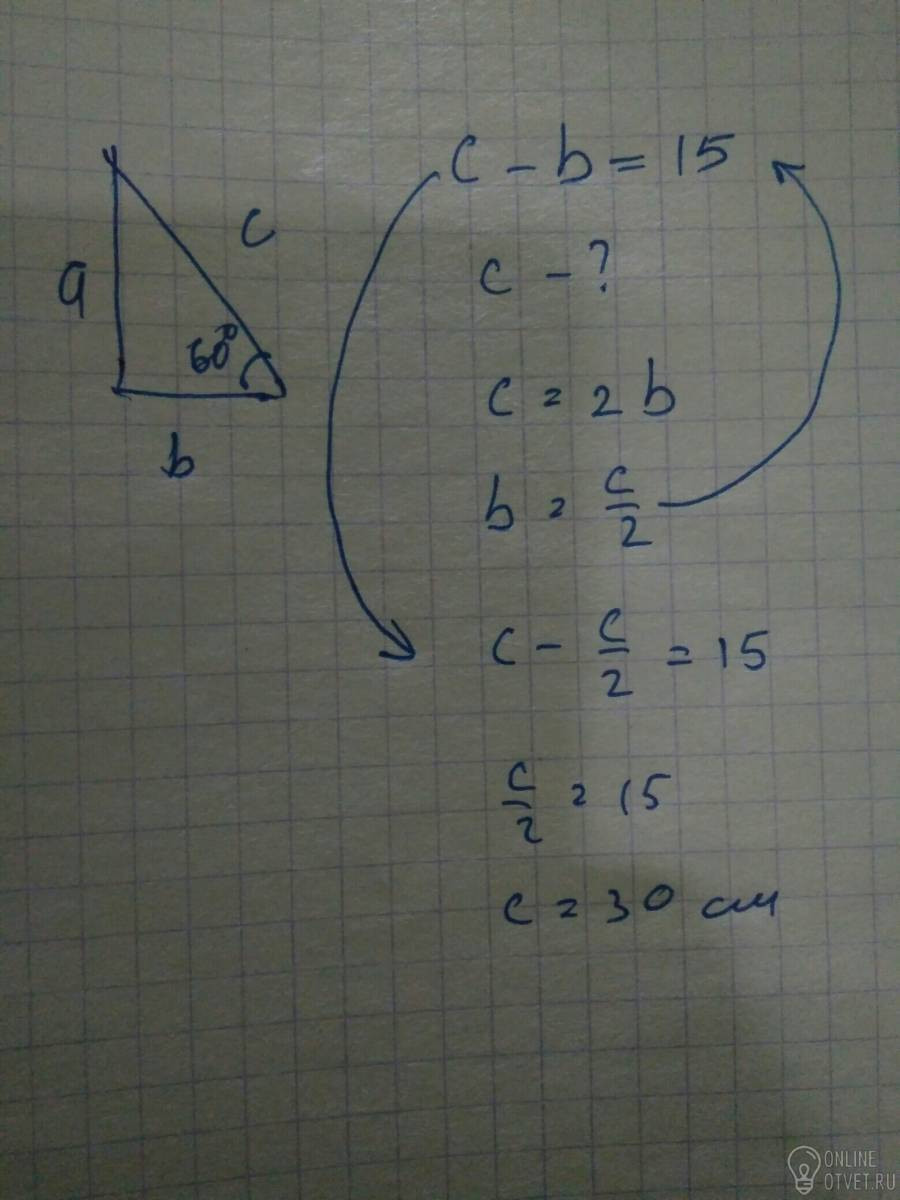 c - b = 15
a
c
60°
b
c - ?
c = 2b
b = c/2
c - c/2 = 15
c/2 = 15
c = 30 см
ONLINE
OTVET.RU